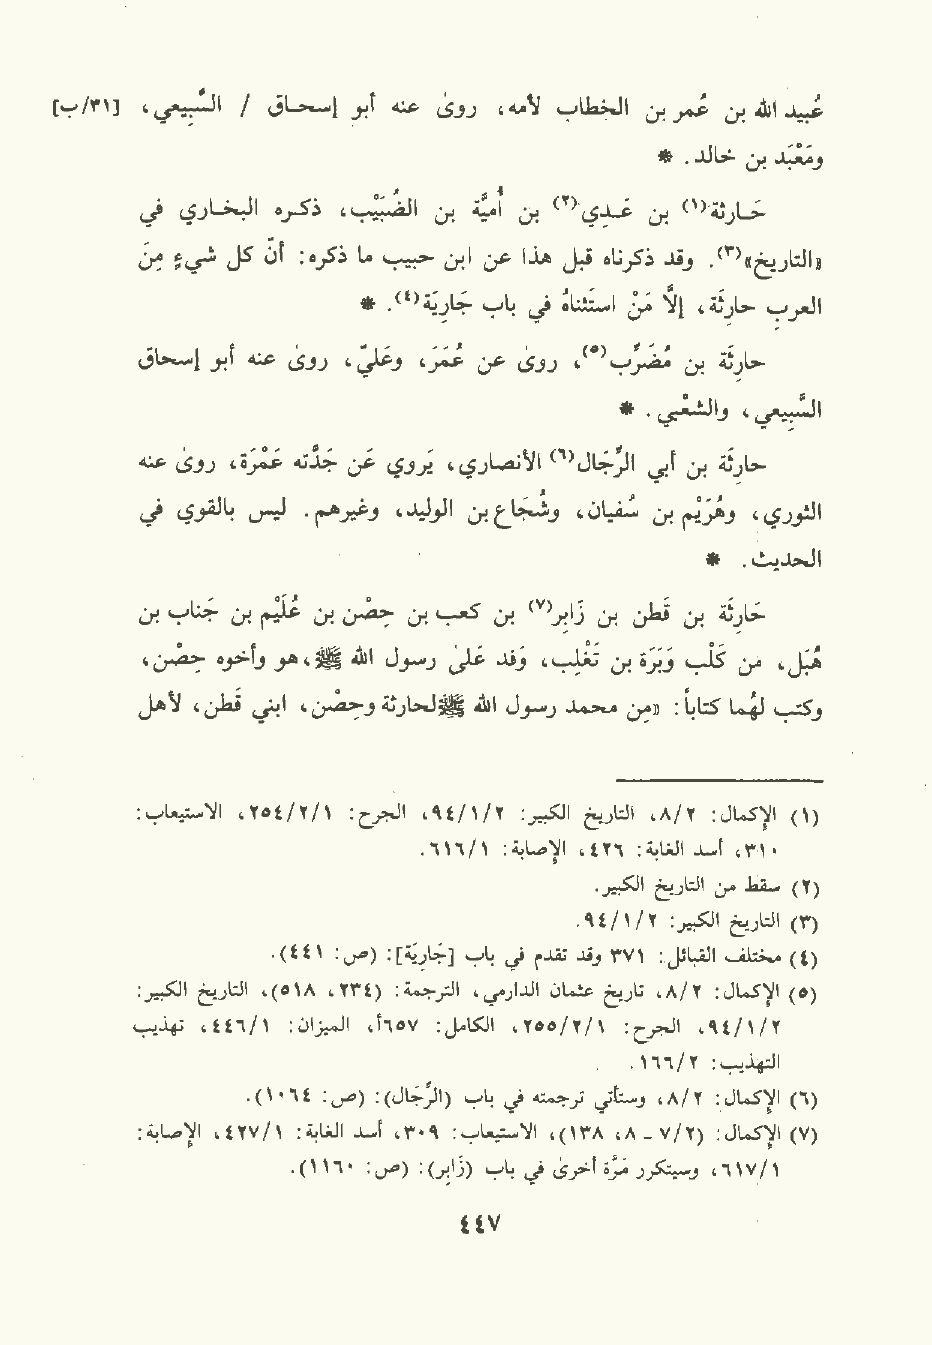 عُبيد الله بن عُمر بن الخطاب لأمه، روىٰ عنه أبو إسحاق / السَّبِيعي، [٣١/ب]
ومَعْبَد بن خالد. *
حَارثة(١) بن عَدِي(٢) بن أُميَّة بن الضُبَيْب، ذكره البخاري في
«التاريخ»(٣). وقد ذكرناه قبل هذا عن ابن حبيب ما ذكره: أنّ كل شيءٍ مِنَ
العربِ حارِثَة، إلّا مَنْ استَثناهُ في باب جَارِيَة(٤). *
حارِثَة بن مُضَرِّب(٥)، روىٰ عن عُمَرَ، وعَليّ، روىٰ عنه أبو إسحاق
السَّبِيعي، والشعْبي. *
حارِثَة بن أبي الرِّجَال(٦) الأنصاري، يَروي عَن جَدَّته عَمْرَة، وروىٰ عنه
الثوري، وهُرَيْم بن سُفيان، وشُجَاع بن الوليد، وغيرهم. ليس بالقوي في
الحديث. *
حَارِثَة بن قَطن بن زَابِر(٧) بن كعب بن حِصْن بن عُلَيْم بن جَناب بن
هُبَل، من كَلْب وَبَرَة بن تَغْلِب، وَفد عَلىٰ رسول الله ﷺ، هو وأخوه حِصْن،
وكتب لهُما كتاباً: «مِن محمد رسول الله ﷺ لحارثة وحِصْن، ابني قَطن، لأهل
(١) الإكمال: ٨/٢، التاريخ الكبير: ٩٤/١/٢، الجرح: ٢٥٤/٢/١، الاستيعاب:
٣١٠، أسد الغابة: ٤٢٦، الإصابة: ٦١٦/١.
(٢) سقط من التاريخ الكبير.
(٣) التاريخ الكبير: ٩٤/١/٢.
(٤) مختلف القبائل: ٣٧١ وقد تقدم في باب [جَارِيَة]: (ص: ٤٤١).
(٥) الإكمال: ٨/٢، تاريخ عثمان الدارمي، الترجمة: (٢٣٤، ٥١٨)، التاريخ الكبير:
٩٤/١/٢، الجرح: ٢٥٥/٢/١، الكامل: ٦٥٧أ، الميزان: ٤٤٦/١، تهذيب
التهذيب: ١٦٦/٢.
(٦) الإكمال: ٨/٢، وستأتي ترجمته في باب (الرِّجَال): (ص: ١٠٦٤).
(٧) الإكمال: (٧/٢ - ٨، ١٣٨)، الاستيعاب: ٣٠٩، أسد الغابة: ٤٢٧/١، الإصابة:
٦١٧/١، وسيتكرر مَرّة أخرىٰ في باب (زَابِر): (ص: ١١٦٠).
٤٤٧